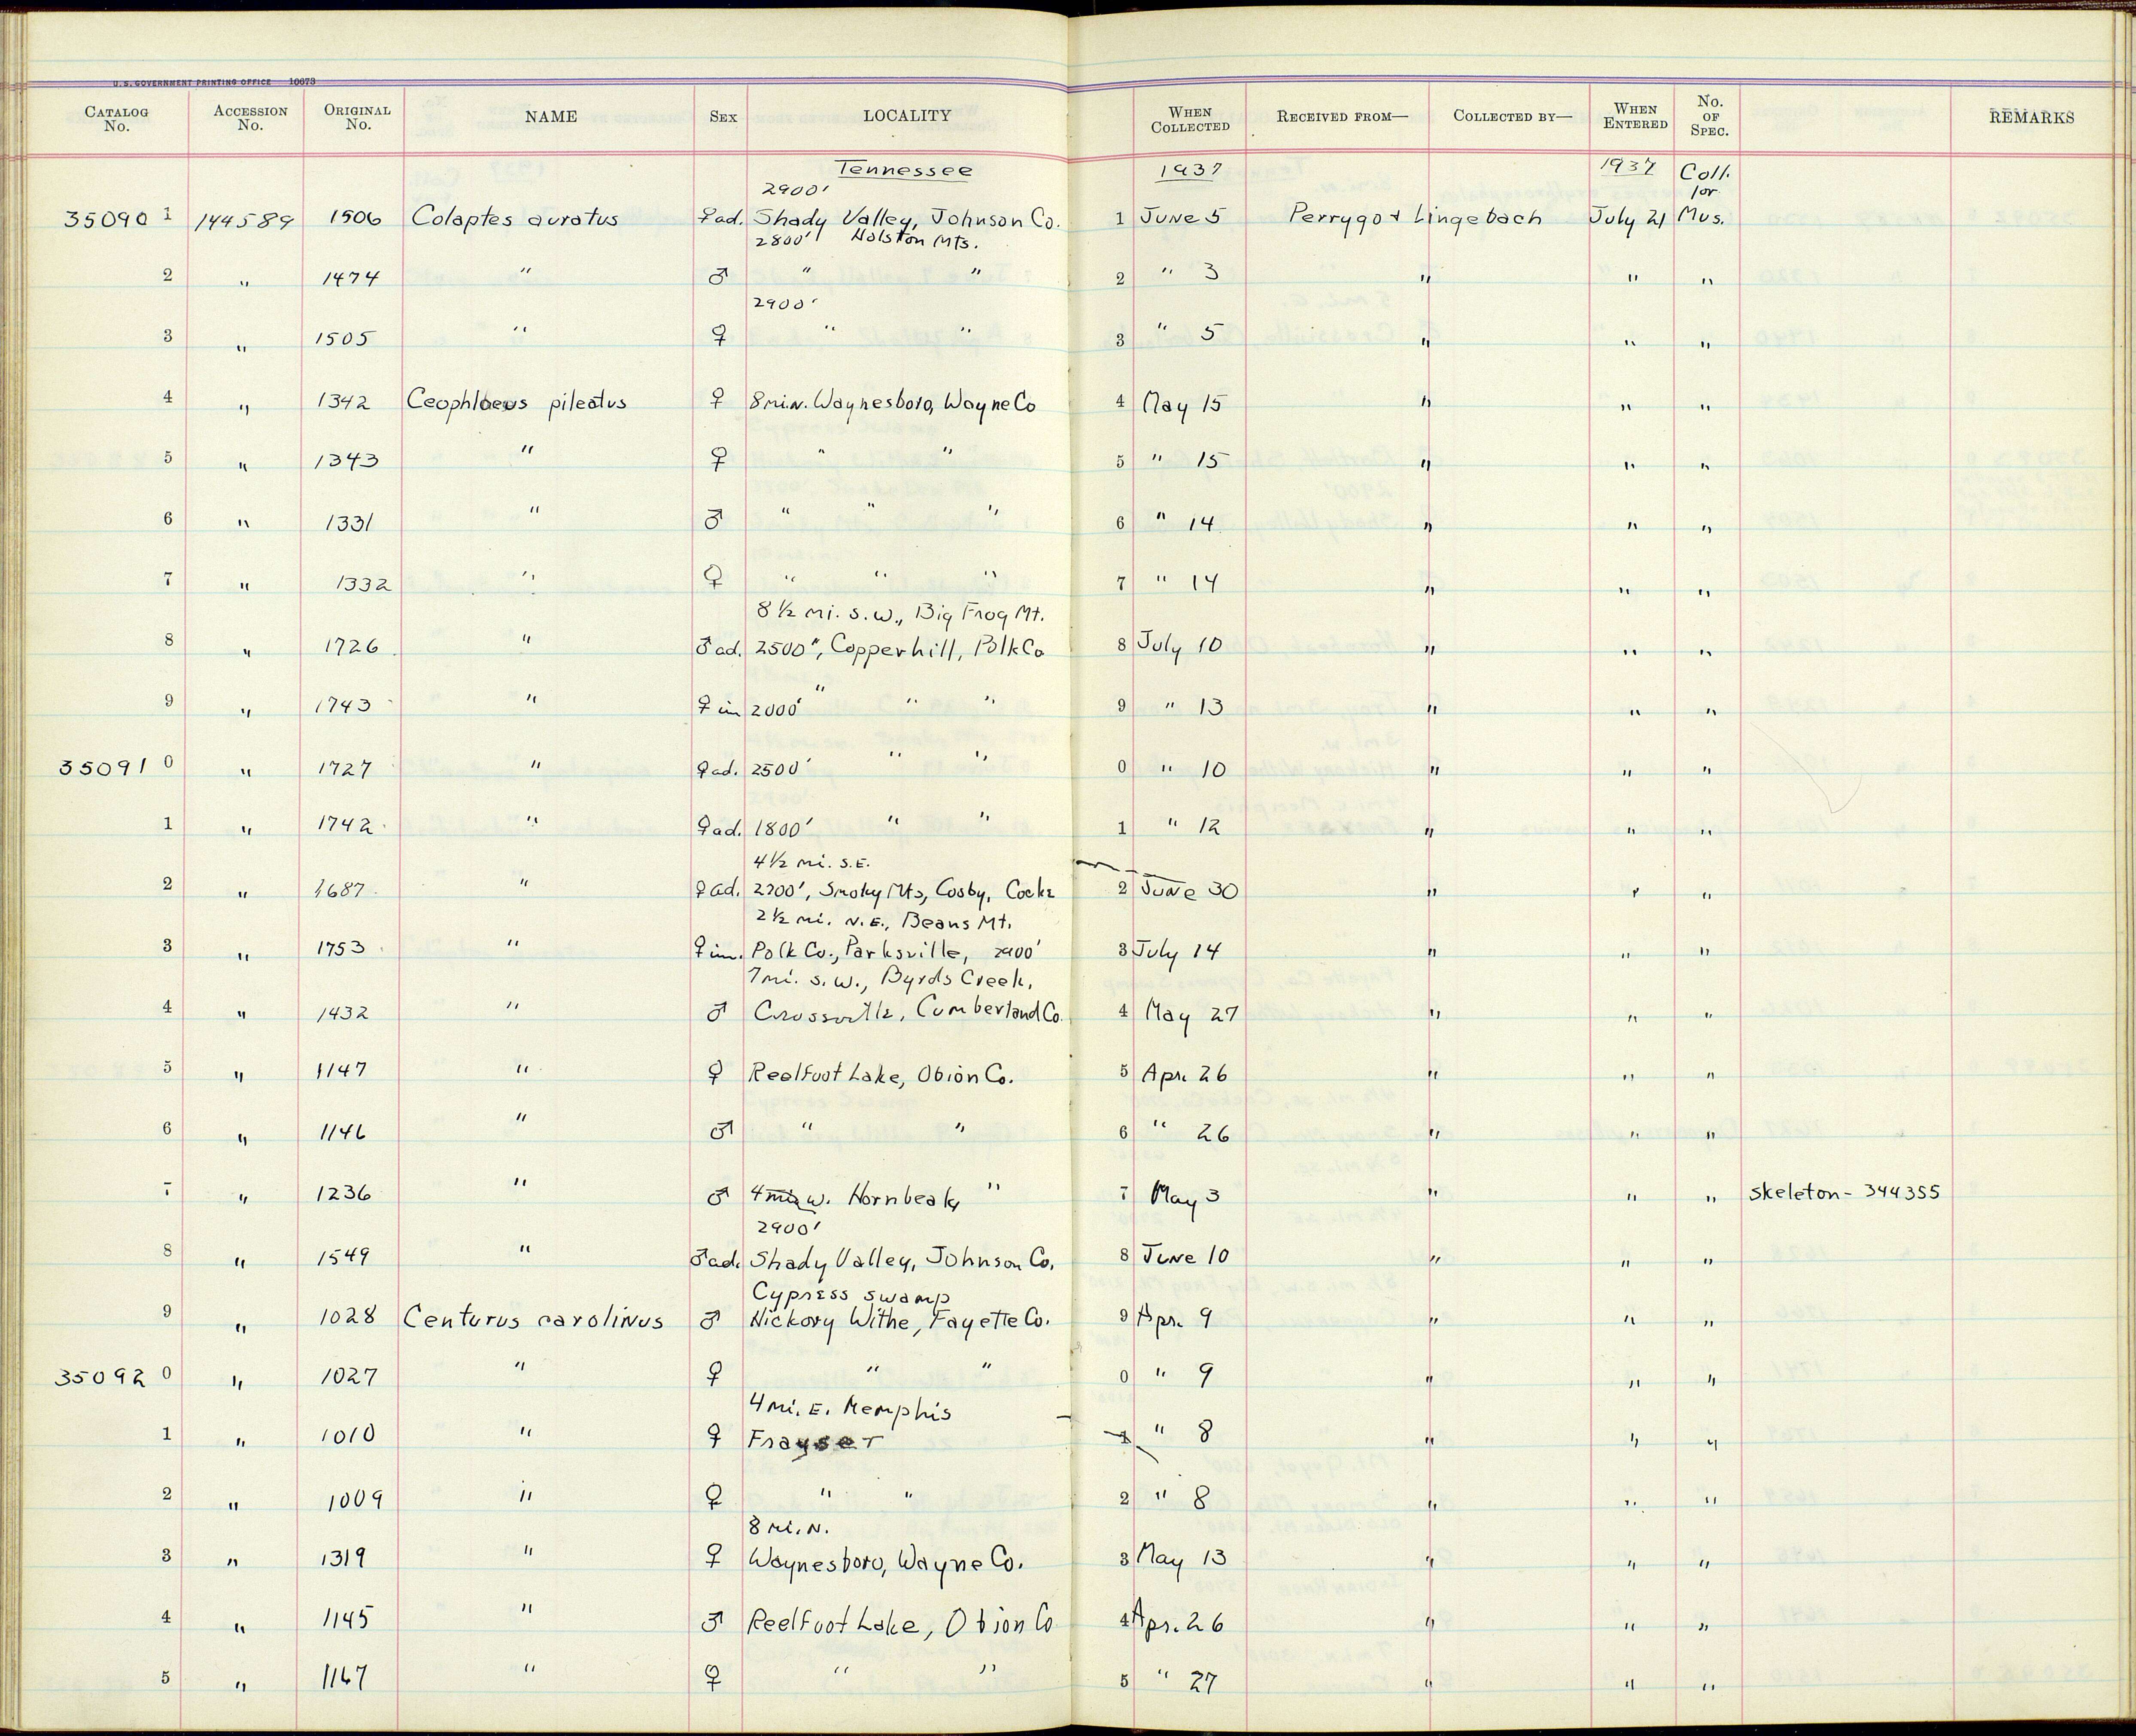 U.S. GOVERNMENT PRINTING OFFICE 10673
CATALOG No. ACCESSION No. ORIGINAL No. NAME SEX LOCALITY WHEN COLLECTED RECEIVED FROM— COLLECTED BY— WHEN ENTERED No. OF SPEC. REMARKS
Tennessee 1937 1937 Coll. for
2900'
35090 1 144589 1506 Colaptes auratus ♀ad. Shady Valley, Johnson Co. 1 June 5 Perrygo & Lingebach July 21 Mus.
2800' Holston Mts.
2 " 1474 " ♂ " " 2 " 3 " " "
2900'
3 " 1505 " ♀ " " 3 " 5 " " "
4 " 1342 Ceophloeus pileatus ♀ 8 mi. N. Waynesboro, Wayne Co 4 May 15 " " "
5 " 1343 " ♀ " " 5 " 15 " " "
6 " 1331 " ♂ " " " 6 " 14 " " "
7 " 1332 " ♀ " " " 7 " 14 " " "
8 1/2 mi. S.W., Big Frog Mt.
8 " 1726 " ♂ad. 2500', Copperhill, Polk Co 8 July 10 " " "
9 " 1743 " ♀ im 2000' " " " 9 " 13 " " "
35091 0 " 1727 " ♀ad. 2500' " " 0 " 10 " " "
1 " 1742 " ♀ad. 1800' " " 1 " 12 " " "
4 1/2 mi. S.E.
2 " 1687 " ♀ad. 2700', Smoky Mts, Cosby, Cocke 2 June 30 " " "
2 1/2 mi. N.E., Beans Mt.
3 " 1753 " ♀im. Polk Co., Parksville, 2400' 3 July 14 " " "
7 mi. S.W., Byrds Creek,
4 " 1432 " ♂ Crossville, Cumberland Co. 4 May 27 " " "
5 " 1147 " ♀ Reelfoot Lake, Obion Co. 5 Apr. 26 " " "
6 " 1146 " ♂ " " 6 " 26 " " "
7 " 1236 " ♂ 4 mi. w. Hornbeak, " 7 May 3 " " " skeleton - 344355
2900'
8 " 1549 " ♂ad. Shady Valley, Johnson Co. 8 June 10 " " "
Cypress swamp
9 " 1028 Centurus carolinus ♂ Hickory Withe, Fayette Co. 9 Apr. 9 " " "
35092 0 " 1027 " ♀ " " 0 " 9 " " "
4 mi. E. Memphis
1 " 1010 " ♀ Frayser 1 " 8 " " "
2 " 1009 " ♀ " " 2 " 8 " " "
8 mi. N.
3 " 1319 " ♀ Waynesboro, Wayne Co. 3 May 13 " " "
4 " 1145 " ♂ Reelfoot Lake, Obion Co 4 Apr. 26 " " "
5 " 1167 " ♀ " " 5 " 27 " " "